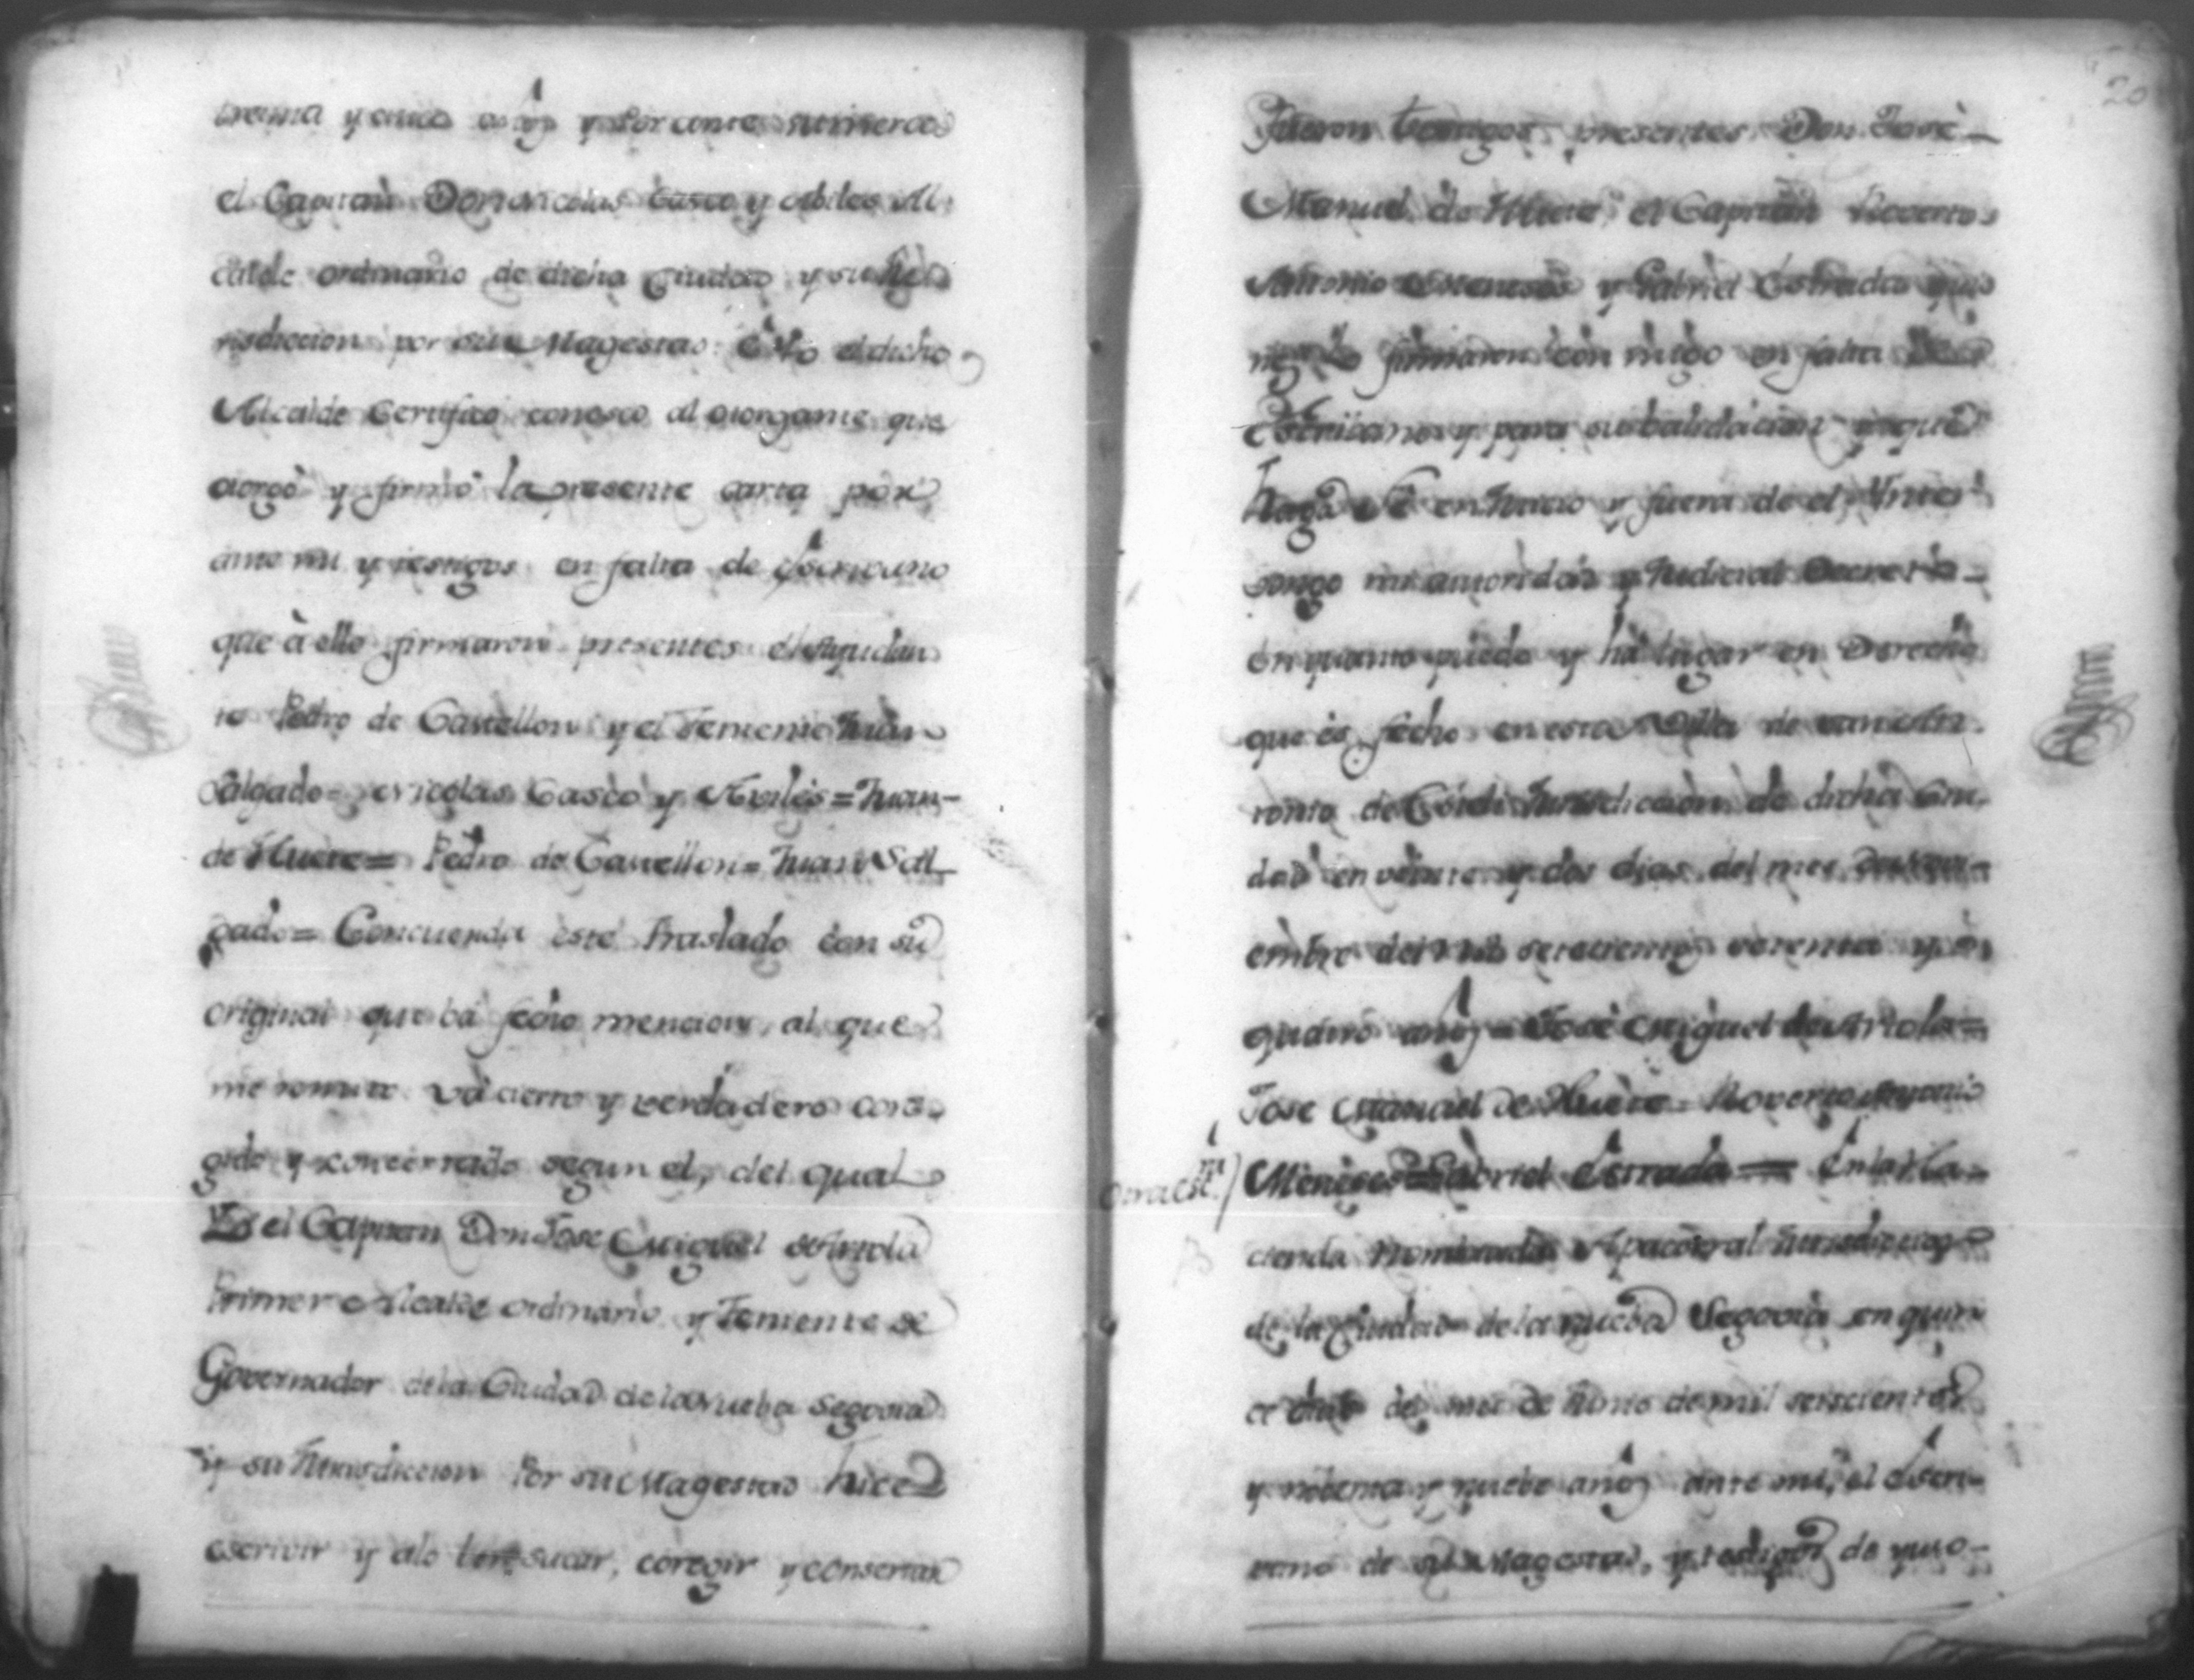 treinta y cinco años y por ante su merced
el Capitan Don Nicolas Casco y Abiles Al
calde ordinario de dicha Ciudad y su Ju
risdiccion por su Magestad. E Yo el dicho
Alcalde Certifico conosco al otorgante que
otorgó y firmó la presente carta por
ante mi y testigos en falta de Escrivano
que à ello firmaron presentes el Ayudan
te Pedro de Castellon y el Teniente Juan
Salgado = Nicolas Casco y Aviles = Juan
de = Pedro de Castellon = Juan Sal
gado = Concuerda este traslado con su
original que bá fecho mencion, al que
me remito vá cierto y verdadero corre
gido y concertado segun el, del qual
Yo el Capitan Don Jose Miguel de Arriola
Primer Alcalde ordinario y Teniente de
Governador de la Ciudad de la Nueba Segovia
y su Jurisdiccion Por su Magestad hice
escrivir y á lo ber sacar, coregir y consertar
20
fueron testigos presentes Don José
Manuel de el Capitan Roverto
Antonio Meneses y Gabriel Estrada qui
nes lo firmaron con migo en falta de
Escrivano y para su balidacion y que
haga feé en Juicio y fuera de el, Inter
pongo mi autoridad y Judicial Decreto
en quanto puedo y há lugar en Derecho
que és fecho en esta Villa de San An
tonio de Jurisdiccion de dicha Ciu
dad en veinte y dos dias del mes de
embre de mil setecientos y
quatro años = José Miguel de Arriola =
Jose Manuel de = Roverto Antonio
Meneses = Gabriel Estrada = En la Ha
otra escra.
cienda nombrada Apacoral Jurisdiccion
de la Ciudad de la nueba Segovia en quin
ce dias del mes de Junio de mil seiscientos
y nobenta y nuebe años ante mi, el Escri
vano de su Magestad, y testigos de yuso